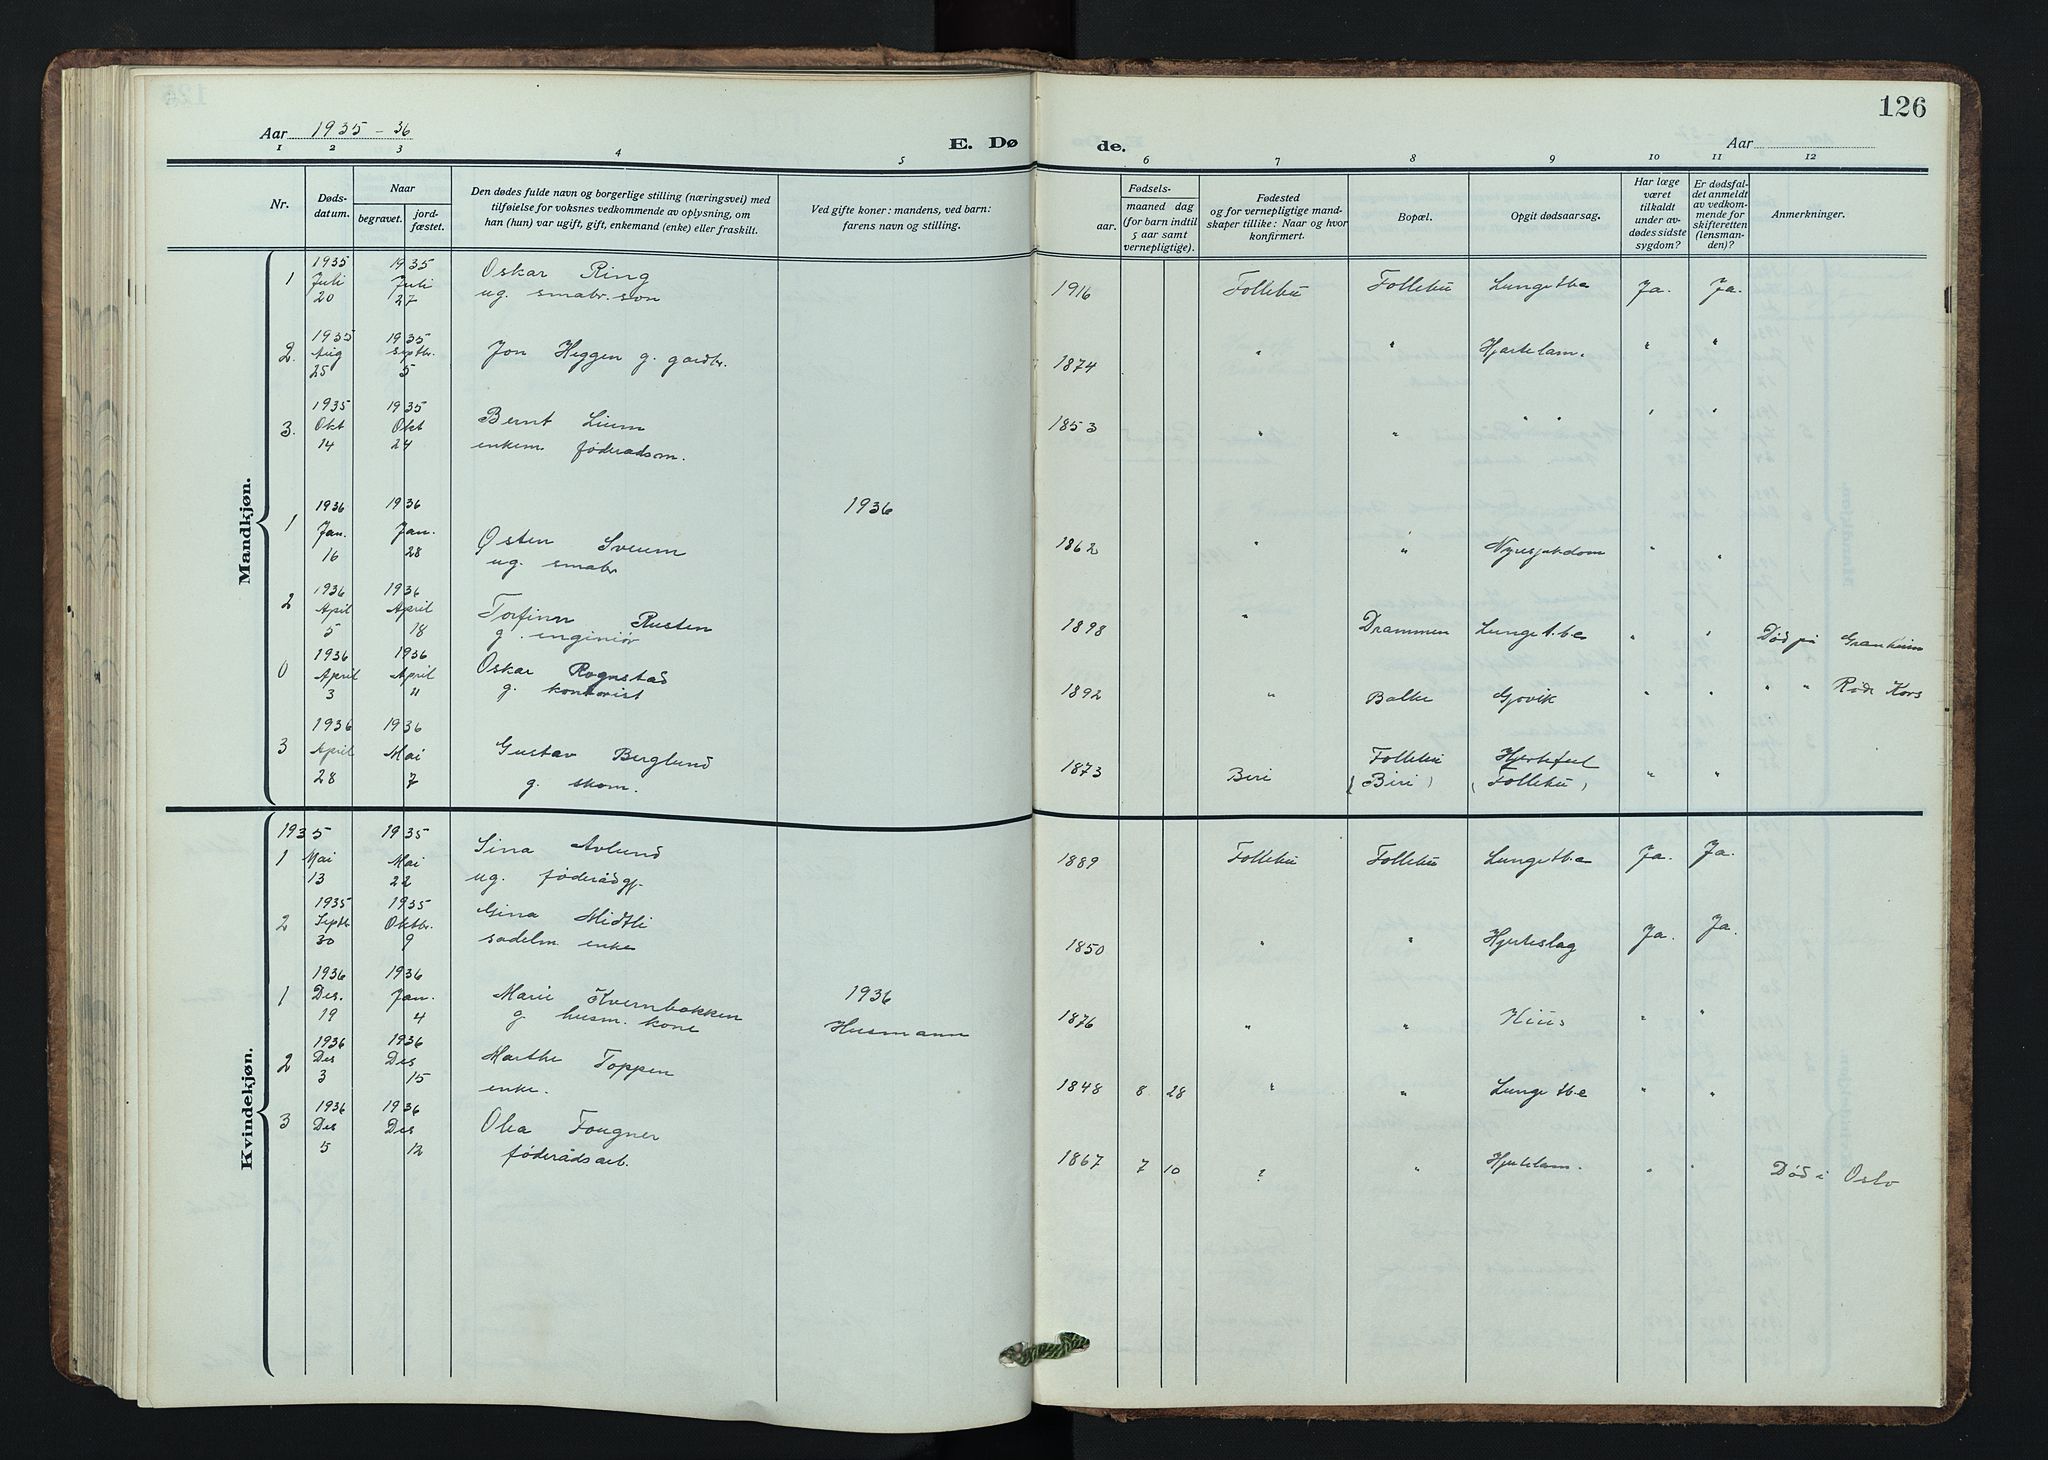 126
Aar 1935 - 36
E. Dø
de.
Aar
1 2 3 4 5 6 7 8 9 10 11 12
Nr.
Døds-
datum.
Naar
begravet.
jord-
fæstet.
Den dødes fulde navn og borgerlige stilling (næringsvei) med
tilføielse for voksnes vedkommende av oplysning, om
han (hun) var ugift, gift, enkemand (enke) eller fraskilt.
Ved gifte koner: mandens, ved barn:
farens navn og stilling.
Fødsels-
aar.
maaned dag
(for barn indtil
5 aar samt
vernepligtige).
Fødested
og for vernepligtige mand-
skaper tillike: Naar og hvor
konfirmert.
Bopæl.
Opgit dødsaarsag.
Har læge
været
tilkaldt
under av-
dødes sidste
sygdom?
Er dødsfal-
det anmeldt
av vedkom-
mende for
skifteretten
(lensman-
den)?
Anmerkninger.
Mandkjøn.
1935 1935
1 Juli Juli Oskar Ring 1916 Follebu Follebu Lungetbc Ja. Ja.
20 27 ug. smabr. søn
1935 1935
2. Aug Septbr. Jon Heggen g. gardbr. 1874 " " Hjertelam. " "
25 5
1935 1935
3. Okt Okt Bernt Lium 1853 " " " " " "
14 24 enkem føderadsm.
1936 1936 1936
1 Jan. Jan.
16 28 Østen Sveum 1862 " " Nyresjukdom " "
ug. smabr
1936 1936
2 April April Torfinn Rusten 1898 " Drammen Lunget.b.c " " Død på Granheim
5 18 g. enginiør
1936 1936
0 April April Oskar Rognstad 1892 " Balke Gjøvik " " " " Røde Kors
3 11 g. kontorist
1936 1936
3 April Mai Gustav Berglund 1873 Biri Follebu Hjertefeil " "
28 7 g. skom. (Biri) (Follebu)
Kvindekjøn.
1935 1935
1 Mai Mai Sina Avlund 1889 Follebu Follebu Lungetbc Ja. Ja.
13 22 ug. føderådgj.
1935 1935
2 Septb Oktbr. Gina Midtli 1850 " " Hjerteslag Ja. Ja.
30 9 sadelm. enke
1936 1936
1 Des. Jan. Marie Kvernbakken 1936
19 4 g. husm. kone Husmann 1876 " " " "
1936 1936
2 Des Des Marthe Toppen 1848 8 28 " " Lunge tbc " "
3 15 enke.
1936 1936
3 Des Des Olea Fougner 1867 7 10 ? " Hjertelam. " " Død i Oslo
5 12 føderådsarb.